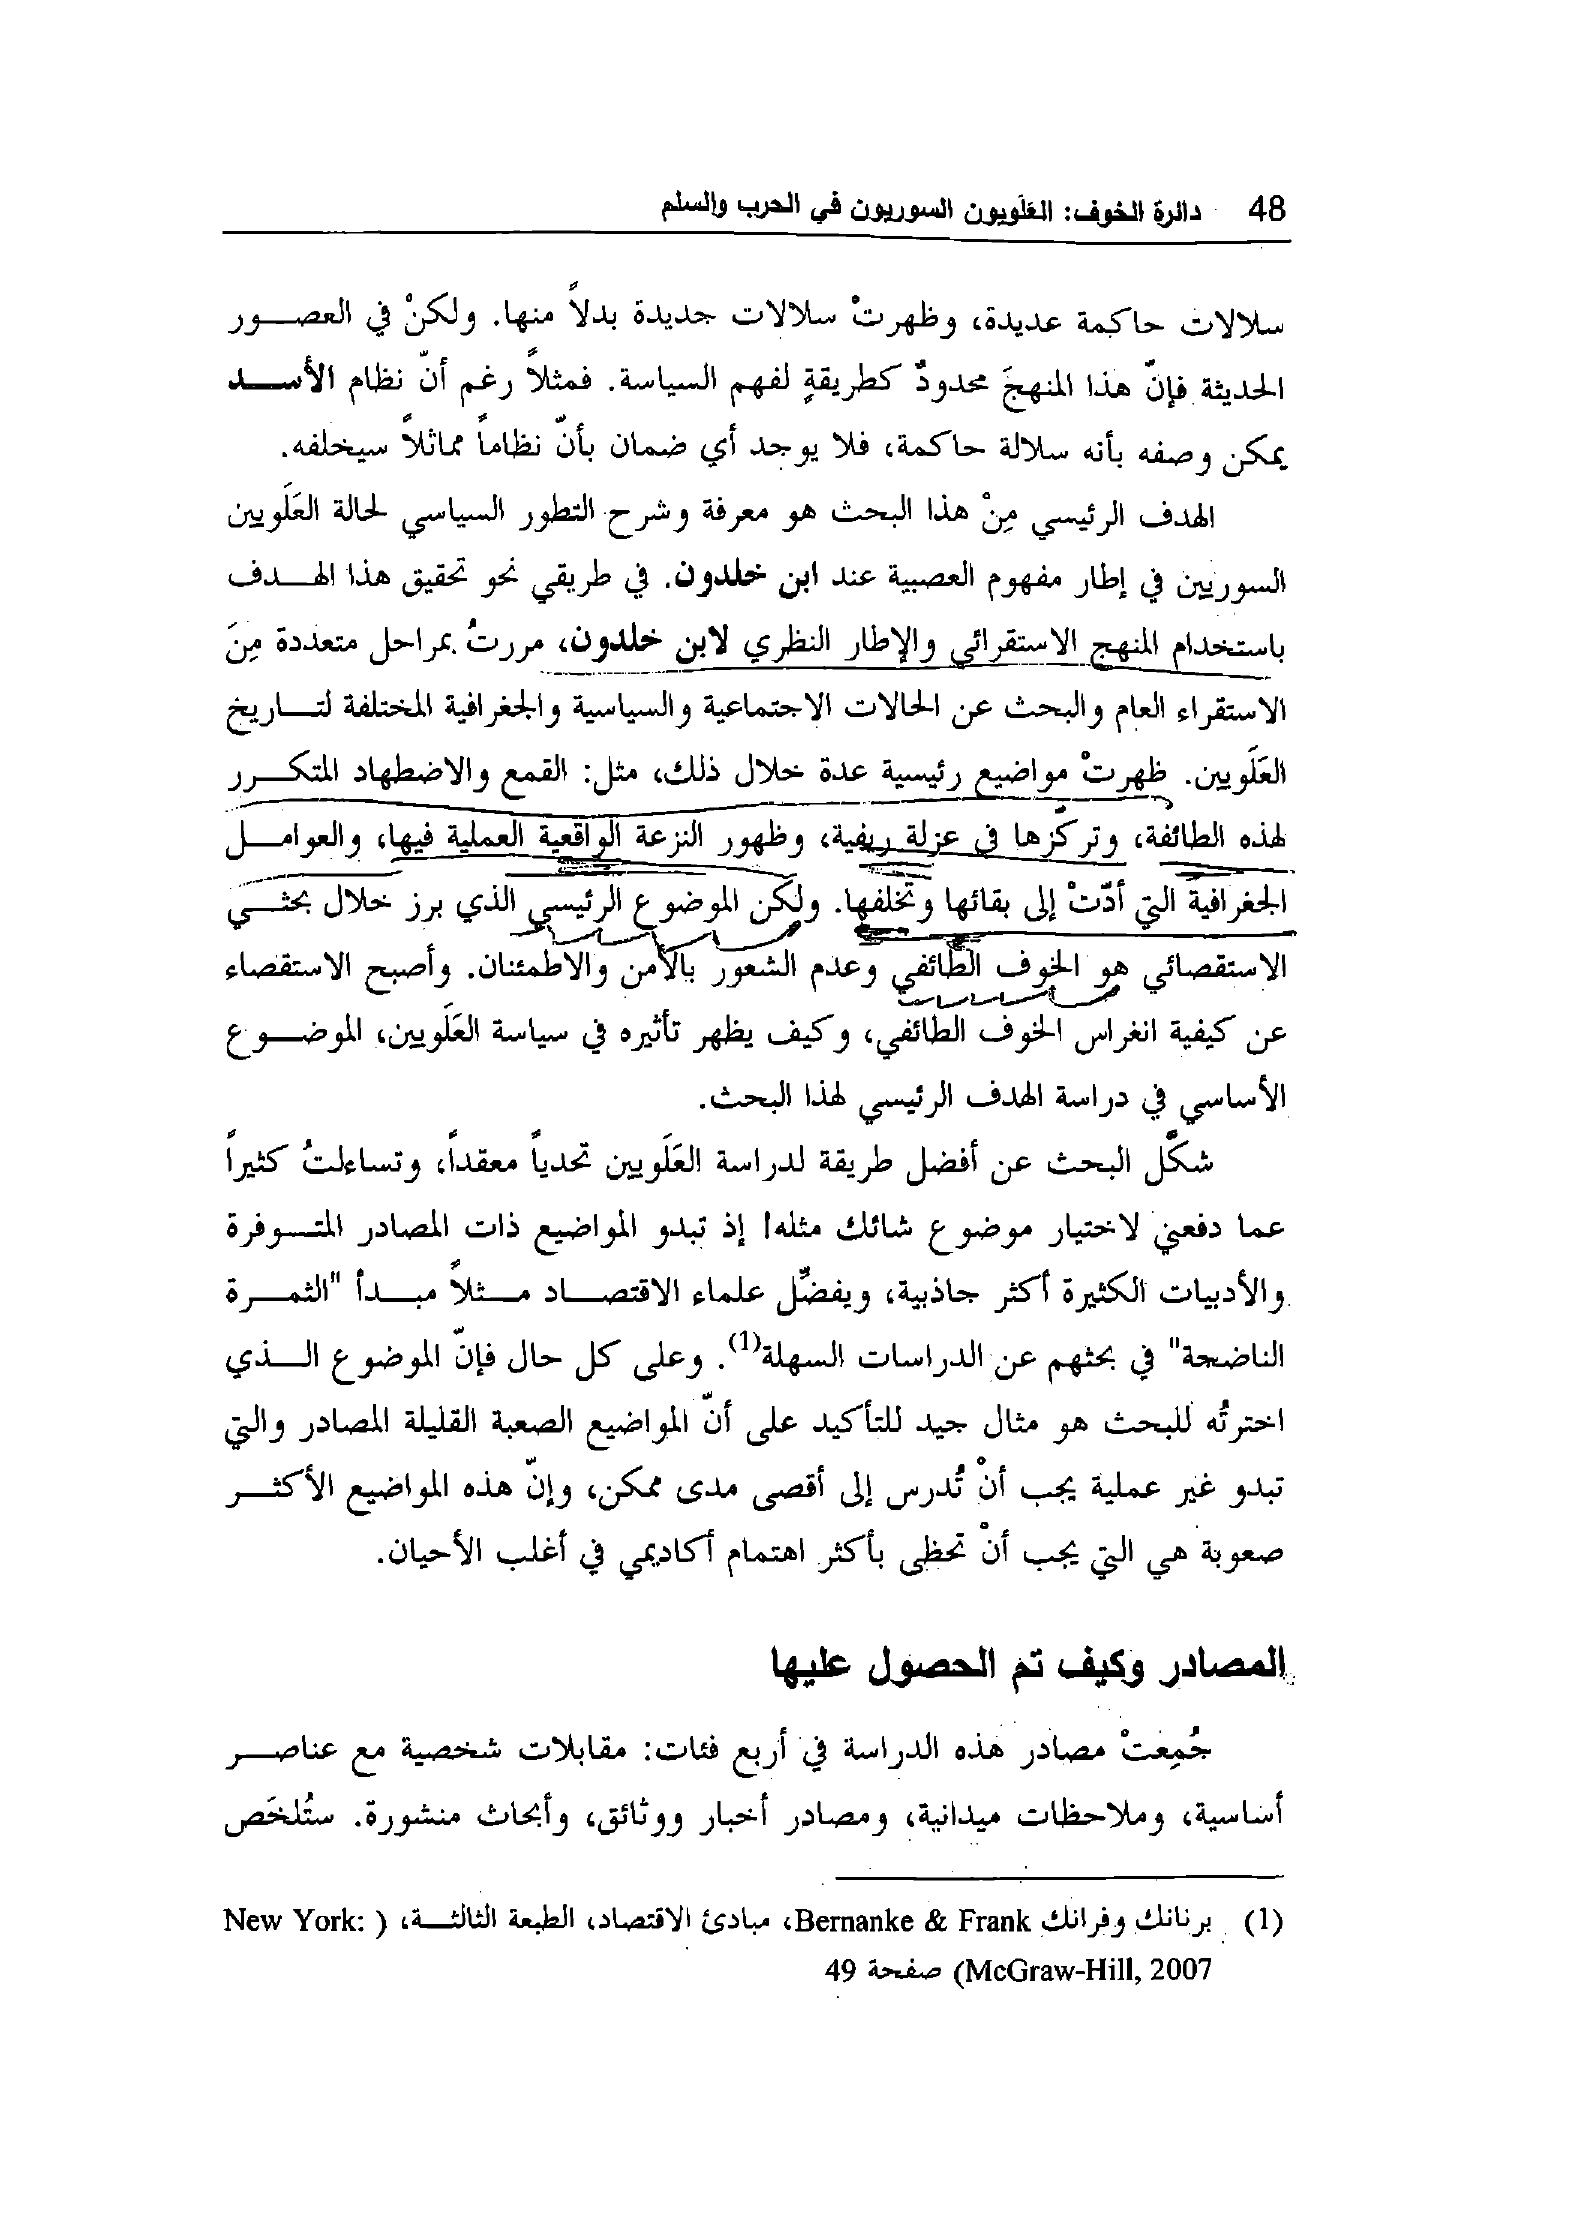 48 دائرة الخوف: العَلَويون السوريون في الحرب والسلم
سلالات حاكمة عديدة، وظهرتْ سلالات جديدة بدلاً منها. ولكنْ في العصور
الحديثة فإنّ هذا المنهجَ محدودٌ كطريقةٍ لفهم السياسة. فمثلاً رغم أنّ نظام الأسد
يمكن وصفه بأنه سلالة حاكمة، فلا يوجد أي ضمان بأنّ نظاماً مماثلاً سيخلفه.
الهدف الرئيسي مِنْ هذا البحث هو معرفة وشرح التطور السياسي لحالة العَلَويين
السوريين في إطار مفهوم العصبية عند ابن خلدون. في طريقي نحو تحقيق هذا الهدف
باستخدام المنهج الاستقرائي والإطار النظري لابن خلدون، مررتُ بمراحل متعددة مِنَ
الاستقراء العام والبحث عن الحالات الاجتماعية والسياسية والجغرافية المختلفة لتاريخ
العَلَويين. ظهرتْ مواضيع رئيسية عدة خلال ذلك، مثل: القمع والاضطهاد المتكرر
لهذه الطائفة، وتركّزها في عزلة ريفية، وظهور النزعة الواقعية العملية فيها، والعوامل
الجغرافية التي أدّتْ إلى بقائها وتخلفها. ولكن الموضوع الرئيسي الذي برز خلال بحثي
الاستقصائي هو الخوف الطائفي وعدم الشعور بالأمن والاطمئنان. وأصبح الاستقصاء
عن كيفية انغراس الخوف الطائفي، وكيف يظهر تأثيره في سياسة العَلَويين، الموضوع
الأساسي في دراسة الهدف الرئيسي لهذا البحث.
شكّل البحث عن أفضل طريقة لدراسة العَلَويين تحدياً معقداً، وتساءلتُ كثيراً
عما دفعني لاختيار موضوع شائك مثله! إذ تبدو المواضيع ذات المصادر المتوفرة
والأدبيات الكثيرة أكثر جاذبية، ويفضّل علماء الاقتصاد مثلاً مبدأ "الثمرة
الناضجة" في بحثهم عن الدراسات السهلة(1). وعلى كل حال فإنّ الموضوع الذي
اخترتُه للبحث هو مثال جيد للتأكيد على أنّ المواضيع الصعبة القليلة المصادر والتي
تبدو غير عملية يجب أنْ تُدرس إلى أقصى مدى ممكن، وإنّ هذه المواضيع الأكثر
صعوبة هي التي يجب أنْ تحظى بأكثر اهتمام أكاديمي في أغلب الأحيان.
المصادر وكيف تم الحصول عليها
جُمِعتْ مصادر هذه الدراسة في أربع فئات: مقابلات شخصية مع عناصر
أساسية، وملاحظات ميدانية، ومصادر أخبار ووثائق، وأبحاث منشورة. ستُلخَص
(1) برنانك وفرانك Bernanke & Frank، مبادئ الاقتصاد، الطبعة الثالثة، ( New York:
McGraw-Hill, 2007) صفحة 49